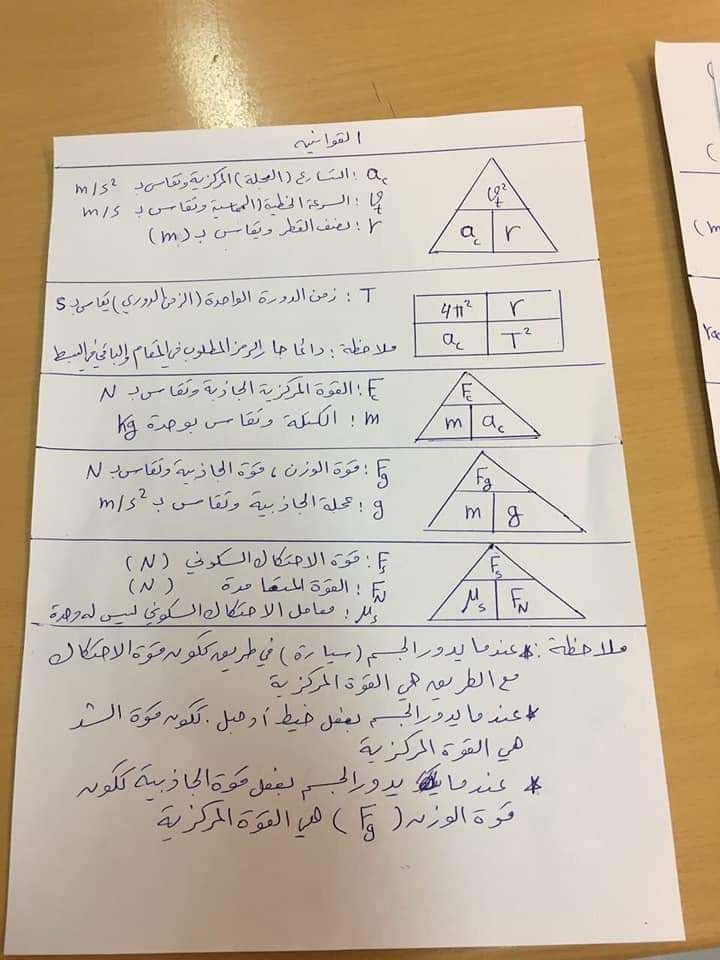 القوانين
a_c : التسارع (العجلة) المركزية وتقاس بـ m/s²
v_t : السرعة الخطية (المماسية وتقاس بـ m/s
r : نصف القطر ويقاس بـ (m)
v_t²
a_c r
T : زمن الدورة الواحدة (الزمن الدوري) يقاس بـ s
ملاحظة : دائما حار الرمز المطلوب في المقام والباقي في البسط
4π² r
a_c T²
F_c : القوة المركزية الجاذبة وتقاس بـ N
m : الكتلة وتقاس بوحدة Kg
F_c
m a_c
F_g : قوة الوزن ، قوة الجاذبية وتقاس بـ N
g : عجلة الجاذبية وتقاس بـ m/s²
F_g
m g
F_s : قوة الاحتكاك السكوني (N)
F_N : القوة المتعامدة (N)
μ_s : معامل الاحتكاك السكوني ليس له وحدة
F_s
μ_s F_N
ملاحظة : * عندما يدور الجسم (سيارة) في طريق تكون قوة الاحتكاك
مع الطريق هي القوة المركزية
* عندما يدور الجسم بفعل خيط أو حبل . تكون قوة الشد
هي القوة المركزية
* عندما يدور الجسم بفعل قوة الجاذبية تكون
قوة الوزن (F_g) هي القوة المركزية
(m